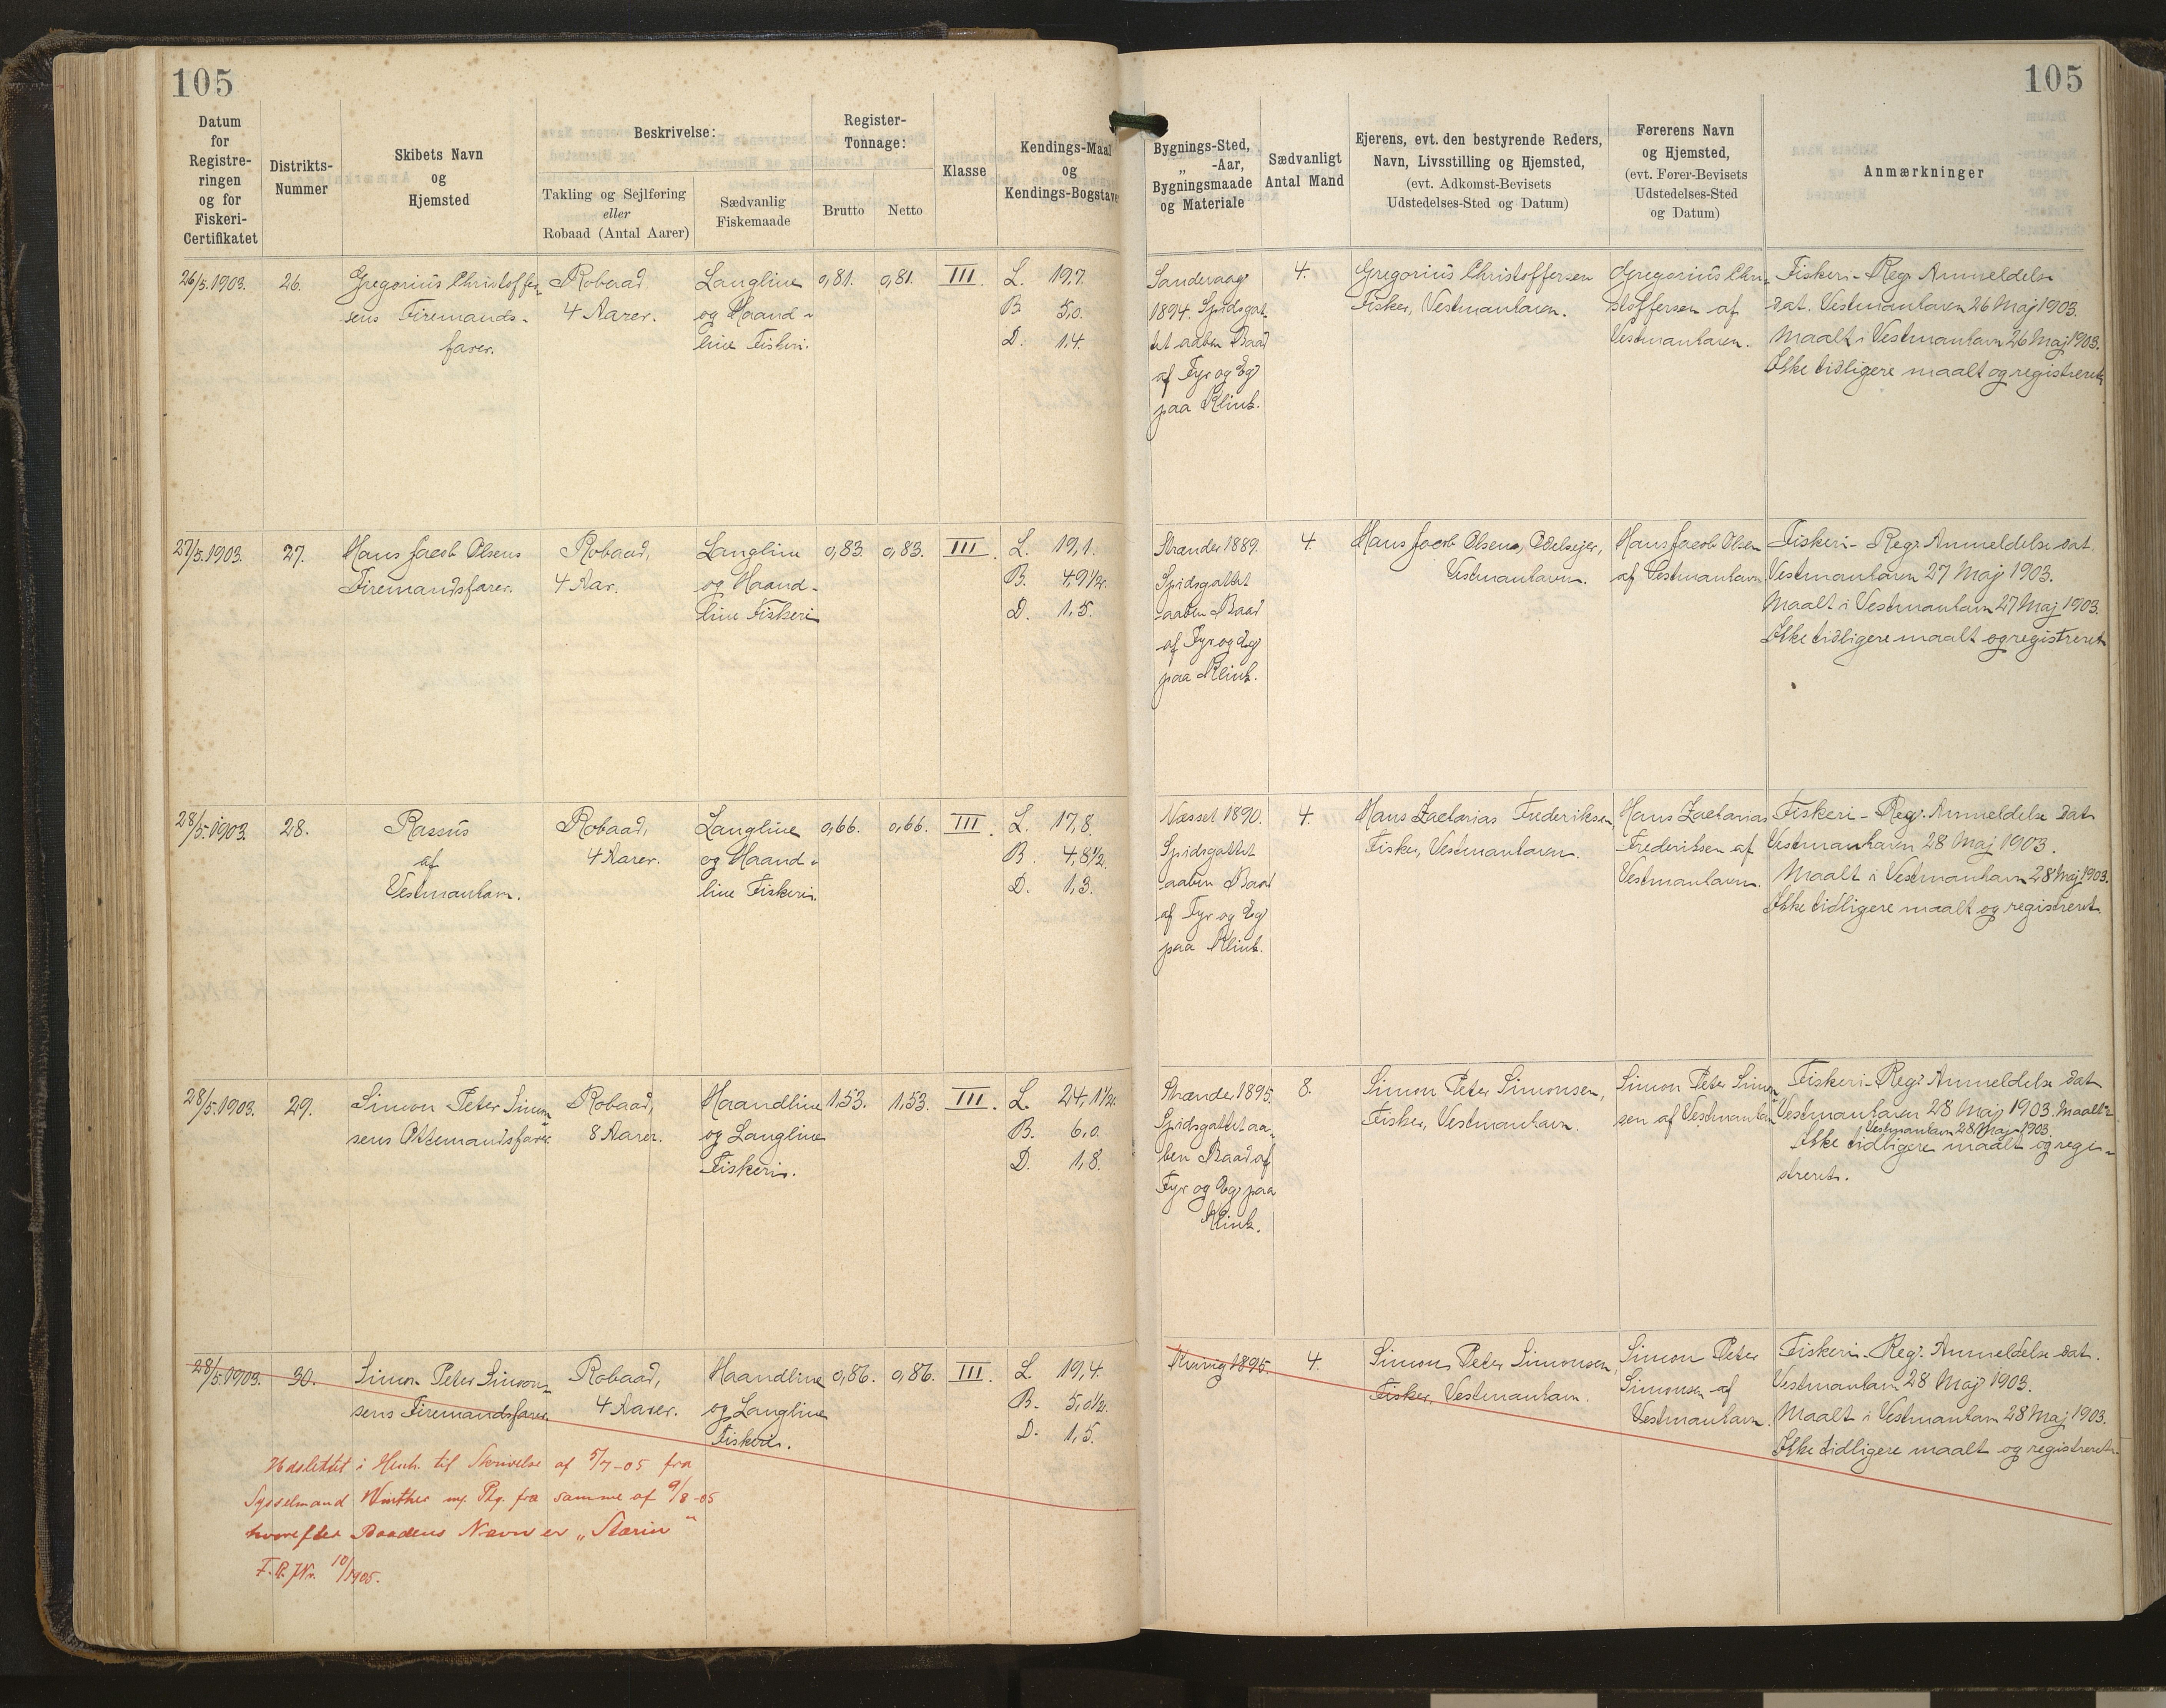 105
105
Datum
for
Registre-
ringen
og for
Fiskeri-
Certifikatet
Distrikts-
Nummer
Skibets Navn
og
Hjemsted
Beskrivelse:
Takling og Sejlføring
eller
Robaad (Antal Aarer)
Sædvanlig
Fiskemaade
Register-
Tonnage:
Brutto
Netto
Klasse
Kendings-Maal
og
Kendings-Bogstaver
Bygnings-Sted,
„ -Aar,
Bygningsmaade
og Materiale
Sædvanligt
Antal Mand
Ejerens, evt. den bestyrende Reders,
Navn, Livsstilling og Hjemsted,
(evt. Adkomst-Bevisets
Udstedelses-Sted og Datum)
Førerens Navn
og Hjemsted,
(evt. Fører-Bevisets
Udstedelses-Sted
og Datum)
Anmærkninger
26/5.1903.
26.
Gregorius Christoffer-
sens Firemands-
farer.
Robaad
4 Aarer.
Langline
og Haand-
line Fiskeri.
0,81.
0,81.
III.
L. 19,7.
B. 5,0.
D. 1,4.
Sandevaag
1894. Spidsgat-
tet aaben Baad
af Fyr og Eg
paa Klink.
4.
Gregorius Christoffersen
Fisker, Vestmanhavn.
Gregorius Chri-
stoffersen af
Vestmanhavn.
Fiskeri-Reg. Anmeldelse
dat. Vestmanhavn 26 Maj 1903.
Maalt i Vestmanhavn 26 Maj 1903.
Ikke tidligere maalt og registreret.
27/5.1903.
27.
Hans Jacob Olsens
Firemandsfarer.
Robaad,
4 Aar.
Langline
og Haand-
line Fiskeri
0,83.
0,83.
III.
L. 19,1.
B. 4,9½.
D. 1,5.
Strænder 1889.
Spidsgattet
aaben Baad
af Fyr og Eg
paa Klink.
4.
Hans Jacob Olsen, Odelsejer,
Vestmanhavn.
Hans Jacob Olsen
af Vestmanhavn
Fiskeri-Reg. Anmeldelse dat.
Vestmanhavn 27 Maj 1903.
Maalt i Vestmanhavn 27 Maj 1903.
Ikke tidligere maalt og registreret
28/5.1903.
28.
Rassus
af
Vestmanhavn.
Robaad,
4 Aarer.
Langline
og Haand-
line Fiskeri.
0,66.
0,66.
III.
L. 17,8.
B. 4,8½.
D. 1,3.
Næsset 1890.
Spidsgattet
aaben Baad
af Fyr og Eg
paa Klink.
4.
Hans Zacharias Frederiksen,
Fisker, Vestmanhavn.
Hans Zacharias
Frederiksen af
Vestmanhavn.
Fiskeri-Reg. Anmeldelse dat
Vestmanhavn 28 Maj 1903.
Maalt i Vestmanhavn 28 Maj 1903.
Ikke tidligere maalt og registreret.
28/5.1903.
29.
Simon Peter Simon-
sens Ottemandsfarer.
Robaad,
8 Aarer.
Haandline
og Langline
Fiskeri.
1,53.
1,53.
III.
L. 24,1½.
B. 6,0.
D. 1,8.
Strænder 1895.
Spidsgattet aa-
ben Baad af
Fyr og Eg paa
Klink.
8.
Simon Peter Simonsen,
Fisker, Vestmanhavn.
Simon Peter Simon-
sen af Vestmanhavn
Fiskeri-Reg. Anmeldelse dat
Vestmanhavn 28 Maj 1903. Maalt i
Vestmanhavn 28 Maj 1903.
Ikke tidligere maalt og regi-
streret.
28/5.1903.
30.
Simon Peter Simon-
sens Firemandsfarer.
Robaad,
4 Aarer.
Haandline
og Langline
Fiskeri.
0,86.
0,86.
III.
L. 19,4.
B. 5,0½.
D. 1,5.
Kvivig 1895.
4.
Simon Peter Simonsen,
Fisker, Vestmanhavn.
Simon Peter
Simonsen af
Vestmanhavn.
Fiskeri-Reg. Anmeldelse dat.
Vestmanhavn 28 Maj 1903.
Maalt i Vestmanhavn 28 Maj 1903.
Ikke tidligere maalt og registreret.
Udslettet i Henh. til Skrivelse af 5/7-05 fra
Sysselmand Winther mf. Ptg. fra samme af 9/8-05
hvorefter Baadens Navn er „Starin"
F.R.JNr. 10/1905.